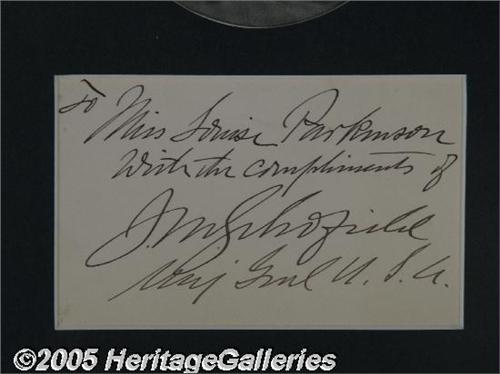 To Miss Louise Parkinson
With the compliments of
J. M. Schofield
Maj Genl U. S. A.
©2005 HeritageGalleries